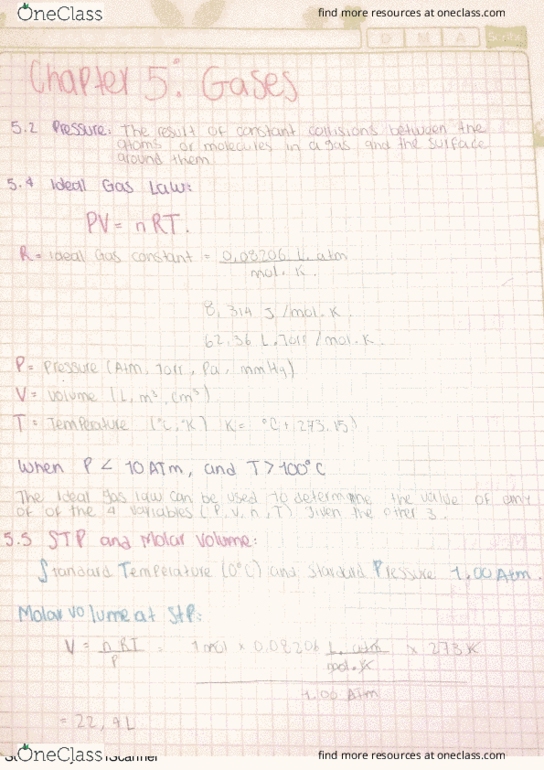 OneClass
find more resources at oneclass.com
D M A
Chapter 5: Gases
5.2 Pressure: The result of constant collisions between the
atoms or molecules in a gas and the surface
around them
5.4 Ideal Gas Law:
PV = nRT.
R = Ideal Gas constant = 0,08206 L. atm
mol. K.
8,314 J/mol.K.
62,36 L.Torr/mol.K.
P = Pressure (Atm, Torr, Pa, mmHg)
V = volume (L, m³, cm³)
T = Temperature (°C, °K) K = °C + 273.15)
When P < 10 ATm, and T > 100°C
The Ideal gas law can be used to determine the value of any
of of the 4 variables (P, V, n, T) given the other 3.
5.5 STP and Molar Volume:
Standard Temperature (0°C) and Standard Pressure 1.00 Atm.
Molar volume at STP:
V = nRT = 1 mol × 0.08206 L. atm × 273 K
P mol. K
1.00 ATm
= 22,4 L
OneClass
Scanner
find more resources at oneclass.com